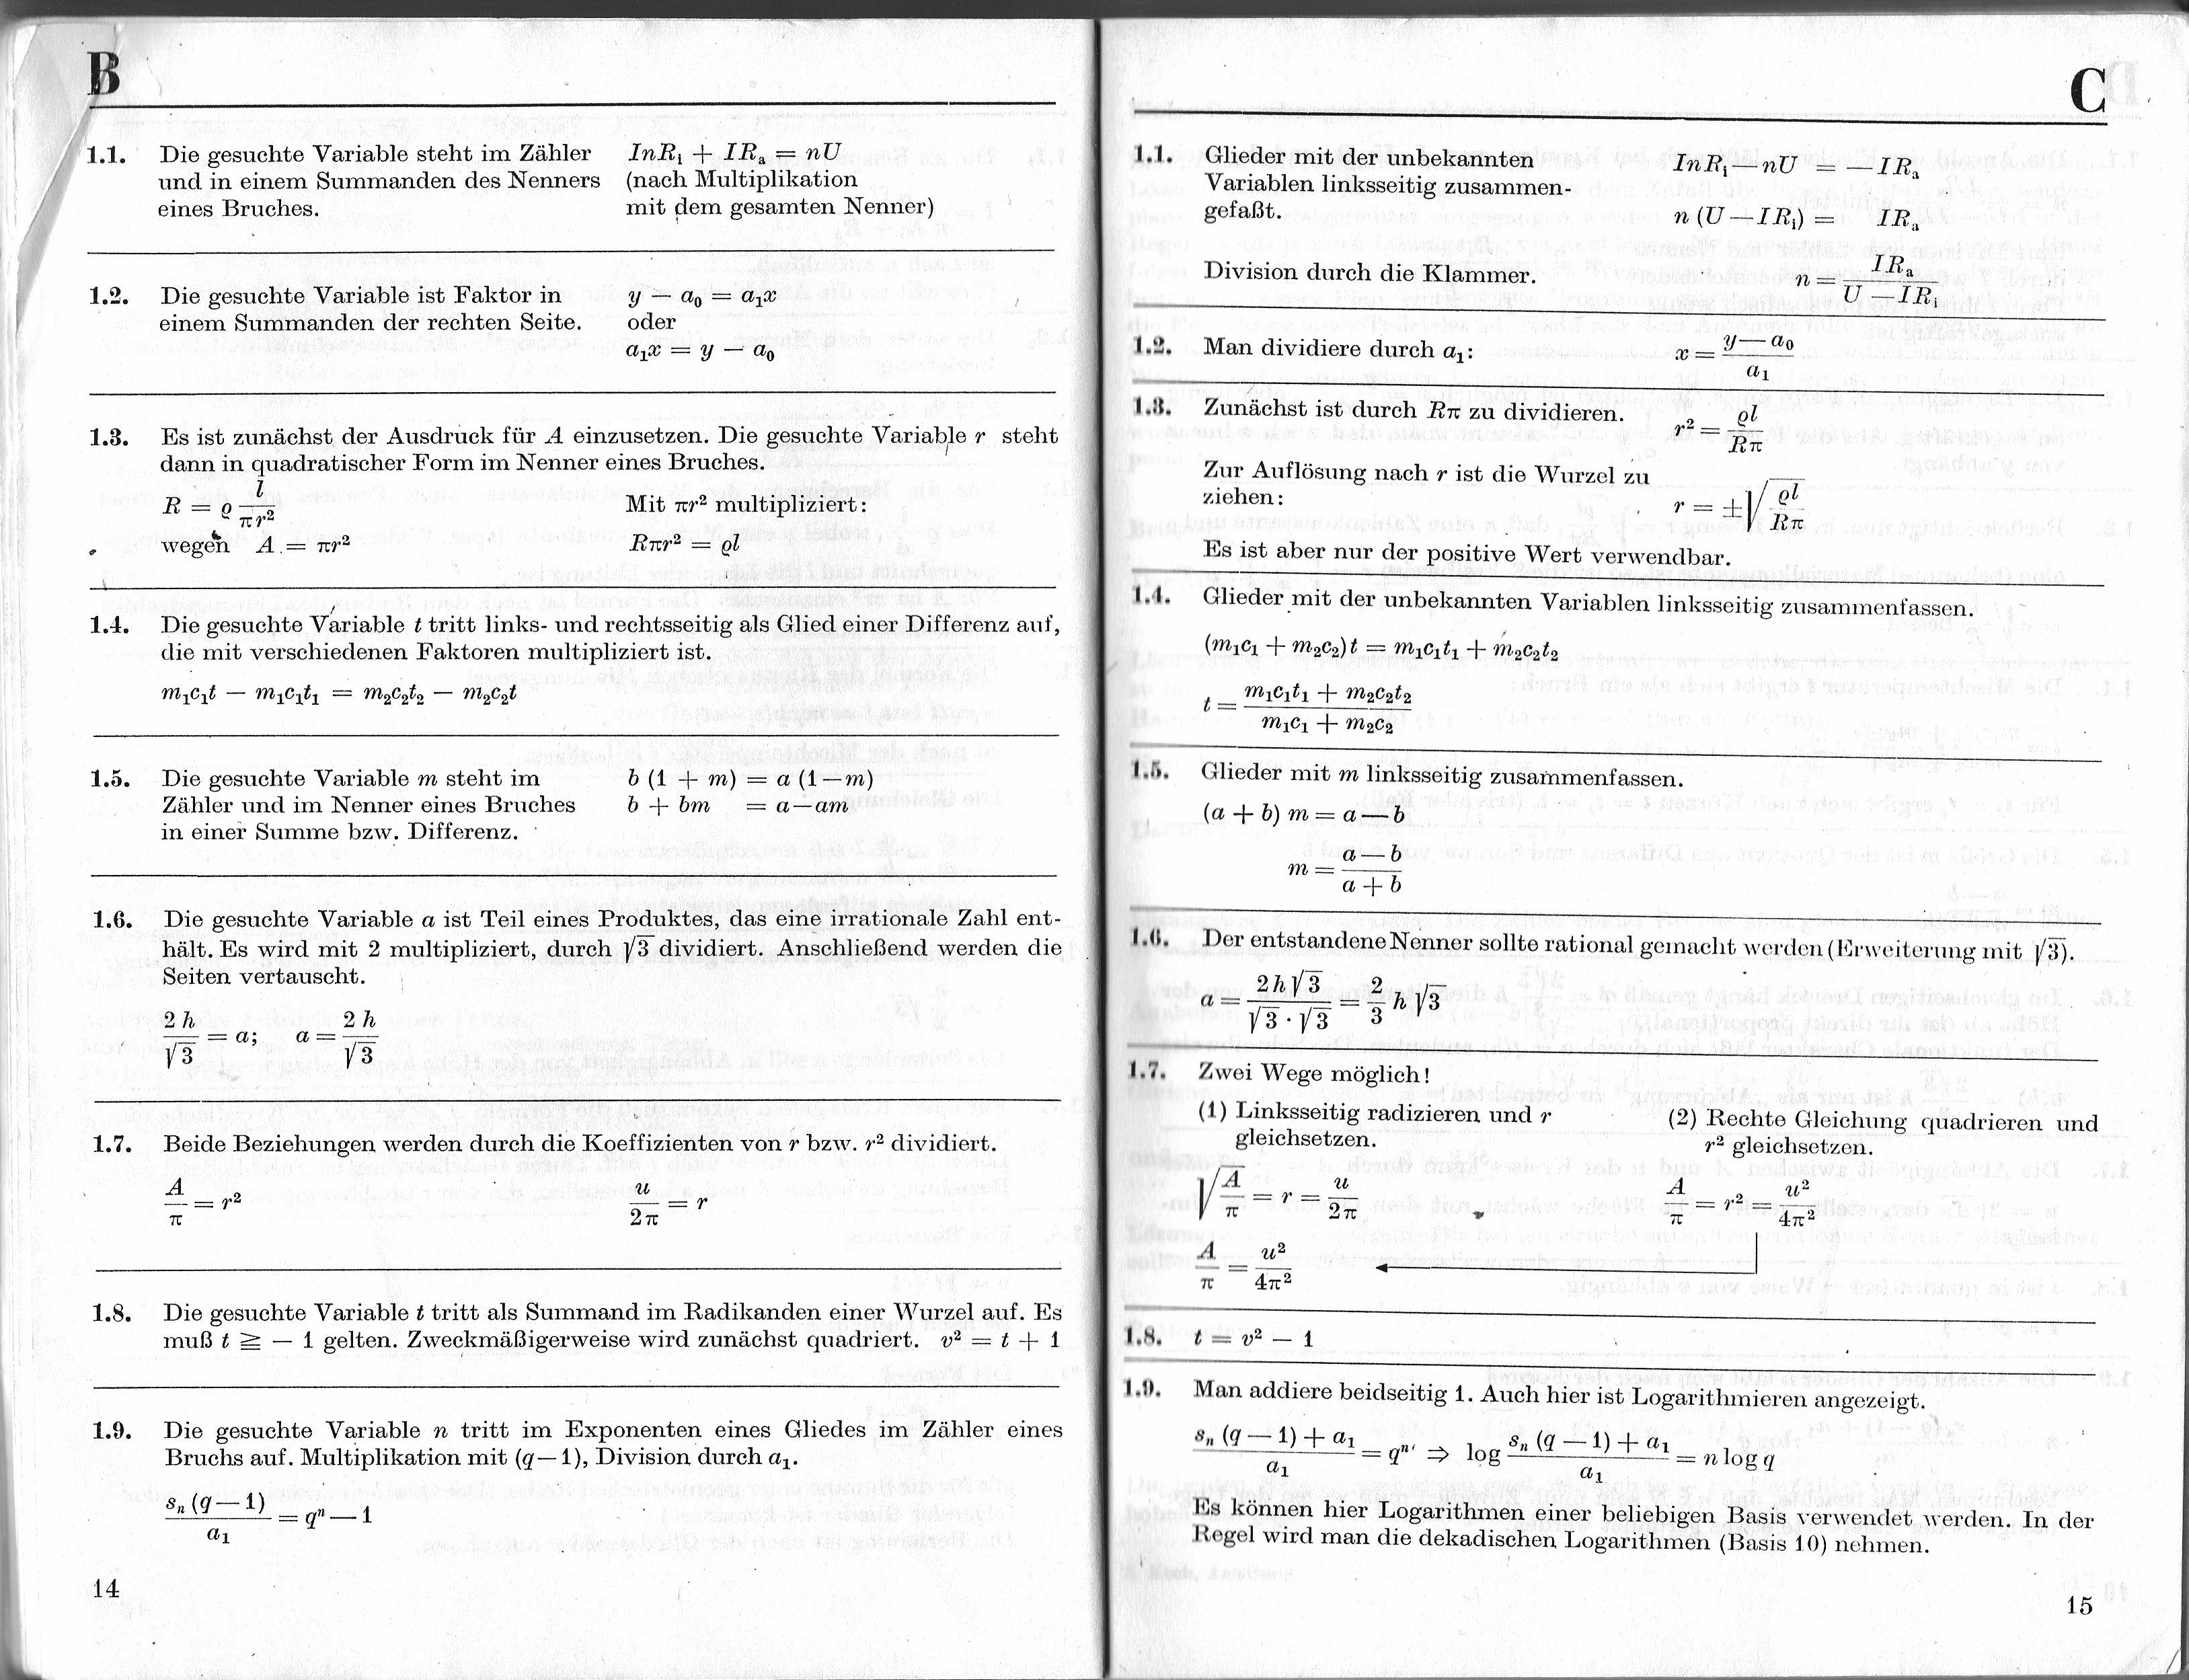 B
1.1. Die gesuchte Variable steht im Zähler InR_i + IR_a = nU
und in einem Summanden des Nenners (nach Multiplikation
eines Bruches. mit dem gesamten Nenner)
1.2. Die gesuchte Variable ist Faktor in y − a₀ = a₁x
einem Summanden der rechten Seite. oder
a₁x = y − a₀
1.3. Es ist zunächst der Ausdruck für A einzusetzen. Die gesuchte Variable r steht
dann in quadratischer Form im Nenner eines Bruches.
R = ϱ l/(πr²) Mit πr² multipliziert:
wegen A = πr² Rπr² = ϱl
1.4. Die gesuchte Variable t tritt links- und rechtsseitig als Glied einer Differenz auf,
die mit verschiedenen Faktoren multipliziert ist.
m₁c₁t − m₁c₁t₁ = m₂c₂t₂ − m₂c₂t
1.5. Die gesuchte Variable m steht im b (1 + m) = a (1—m)
Zähler und im Nenner eines Bruches b + bm = a—am
in einer Summe bzw. Differenz.
1.6. Die gesuchte Variable a ist Teil eines Produktes, das eine irrationale Zahl ent-
hält. Es wird mit 2 multipliziert, durch √3 dividiert. Anschließend werden die
Seiten vertauscht.
2h/√3 = a; a = 2h/√3
1.7. Beide Beziehungen werden durch die Koeffizienten von r bzw. r² dividiert.
A/π = r² u/2π = r
1.8. Die gesuchte Variable t tritt als Summand im Radikanden einer Wurzel auf. Es
muß t ≧ − 1 gelten. Zweckmäßigerweise wird zunächst quadriert. v² = t + 1
1.9. Die gesuchte Variable n tritt im Exponenten eines Gliedes im Zähler eines
Bruchs auf. Multiplikation mit (q—1), Division durch a₁.
s_n (q—1)/a₁ = qⁿ — 1
14
C
1.1. Glieder mit der unbekannten InR_i — nU = — IR_a
Variablen linksseitig zusammen-
gefaßt. n (U — IR_i) = IR_a
Division durch die Klammer. n = IR_a/(U — IR_i)
1.2. Man dividiere durch a₁: x = (y — a₀)/a₁
1.3. Zunächst ist durch Rπ zu dividieren. r² = ϱl/Rπ
Zur Auflösung nach r ist die Wurzel zu
ziehen: r = ±√(ϱl/Rπ)
Es ist aber nur der positive Wert verwendbar.
1.4. Glieder mit der unbekannten Variablen linksseitig zusammenfassen.
(m₁c₁ + m₂c₂) t = m₁c₁t₁ + m₂c₂t₂
t = (m₁c₁t₁ + m₂c₂t₂)/(m₁c₁ + m₂c₂)
1.5. Glieder mit m linksseitig zusammenfassen.
(a + b) m = a — b
m = (a — b)/(a + b)
1.6. Der entstandene Nenner sollte rational gemacht werden (Erweiterung mit √3).
a = 2h√3/(√3 · √3) = 2/3 h √3
1.7. Zwei Wege möglich!
(1) Linksseitig radizieren und r
gleichsetzen.
(2) Rechte Gleichung quadrieren und
r² gleichsetzen.
√(A/π) = r = u/2π A/π = r² = u²/4π²
A/π = u²/4π² ←
1.8. t = v² − 1
1.9. Man addiere beidseitig 1. Auch hier ist Logarithmieren angezeigt.
(s_n (q — 1) + a₁)/a₁ = qⁿ ⇒ log (s_n (q — 1) + a₁)/a₁ = n log q
Es können hier Logarithmen einer beliebigen Basis verwendet werden. In der
Regel wird man die dekadischen Logarithmen (Basis 10) nehmen.
15